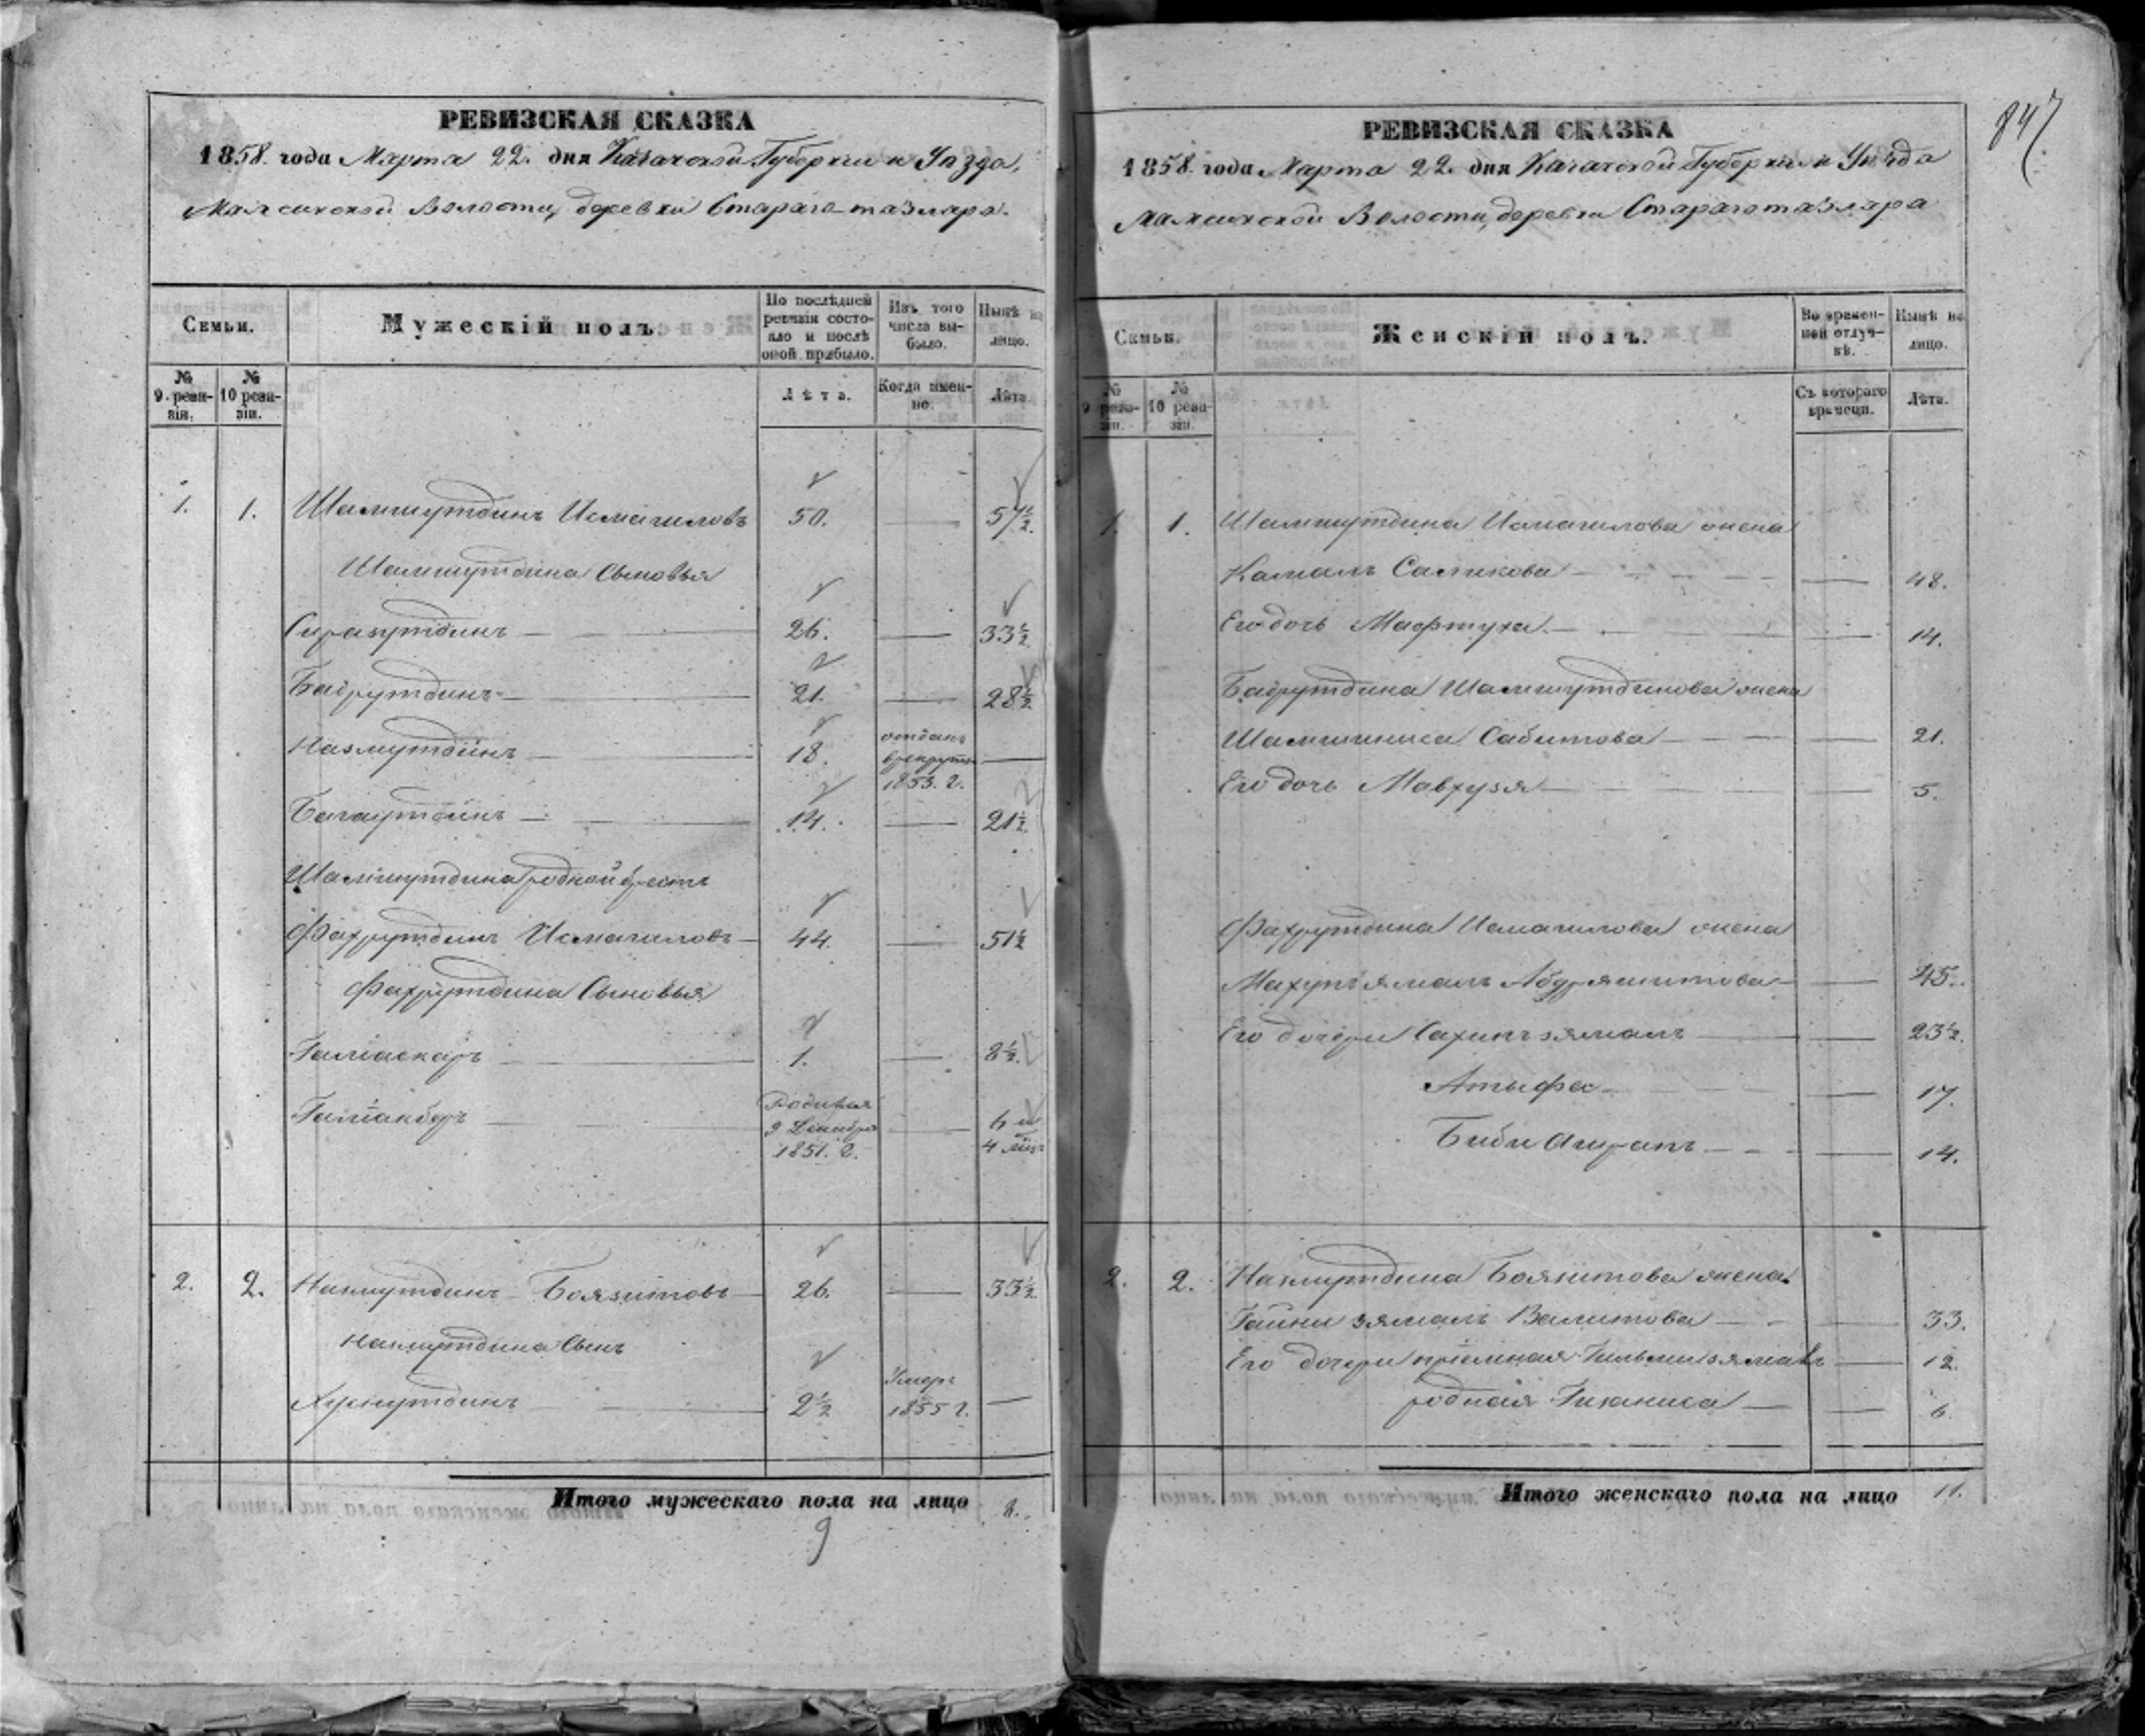 РЕВИЗСКАЯ СКАЗКА
1858. года Марта 22. дня Казанской Губернии и Уѣзда,
Мамсинской Волости, деревни Стараго-тазляра.
Семьи.
Мужескій полъ.
По послѣдней ревизіи состояло и послѣ оной прибыло.
Изъ того числа выбыло.
Нынѣ на лицо.
№ 9. ревизіи.
№ 10 ревизіи.
Лѣта.
Когда именно.
Лѣта.
1. 1. Шамшутдинъ Исмагиловъ 50. — 57½.
Шамшутдина Сыновья
Сиразутдинъ — 26. — 33½
Бадрутдинъ — 21. — 28½
Назмутдинъ — 18. отданъ в рекруты 1853. г. —
Багаутдинъ — 14. — 21½
Шамшутдина родной братъ
Фахрутдинъ Исмагиловъ — 44. — 51½
Фахрутдина Сыновья
Галіаскаръ — 1. — 8½.
Галіакберъ — Родился 9 Декабря 1851. г. — 6 и 4 мѣс
2. 2. Накмутдинъ Боязитовъ — 26. — 33½.
Накмутдина Сынъ
Хуснутдинъ — 2½ Умеръ 1855 г. —
Итого мужескаго пола на лицо 8.
9
847
РЕВИЗСКАЯ СКАЗКА
1858. года Марта 22. дня Казанской Губернии и Уѣзда
Мамсинской Волости, деревни Стараготазлара
Семьи.
Женскій полъ.
Во временной отлучкѣ.
Нынѣ на лицо.
№ 9 ревизіи.
№ 10 ревизіи.
Съ котораго времени.
Лѣта.
1. 1. Шамшутдина Исмагилова жена
Камалъ Саликова — — 48.
Его дочь Мафтуха — — 14.
Бадрутдина Шамшутдинова жена
Шамшиниса Сабитова — — 21.
Его дочь Мавхузя — — 5.
Фахрутдина Исмагилова жена
Махупъямалъ Абдряшитова — — 45.
Его дочери Сахипъзямалъ — 23½.
Атыфа — — 17.
Биби Ашрапъ — — 14.
2. 2. Накмутдина Боязитова жена
Гайни зямалъ Валитова — — 33.
Его дочери пріемная Гильмизямалъ — 12.
родная — 6.
Итого женскаго пола на лицо 11.